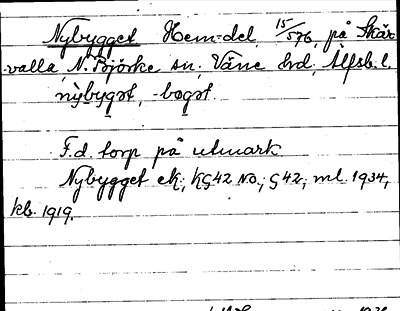 Nybygget Hem.del 15/576, på Skär-
valla, N. Björke sn, Väne hd, Älfsb. l.
nybygət, -bogət.
F.d. torp på utmark
Nybygget ek, KG42 NO; G42, ml. 1934,
kb. 1919.